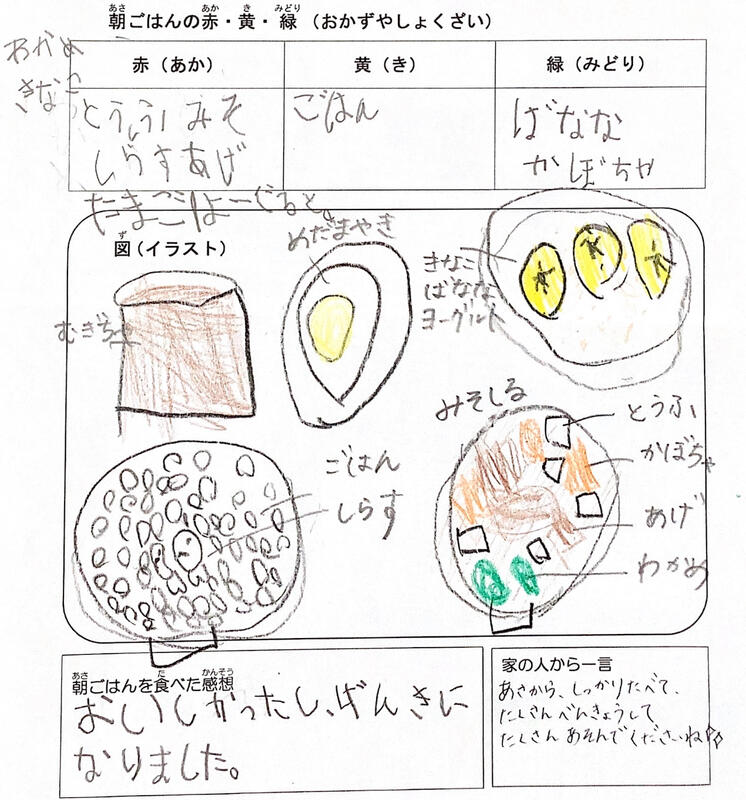 朝ごはんの赤・黄・緑（おかずやしょくざい）
赤（あか）
黄（き）
緑（みどり）
わかめ
きなこ
とうふ みそ
しらすあげ
たまごよーぐると
ごはん
ばなな
かぼちゃ
図（イラスト）
めだまやき
きなこ
ばなな
ヨーグルト
むぎちゃ
みそしる
とうふ
かぼちゃ
あげ
わかめ
ごはん
しらす
朝ごはんを食べた感想
おいしかったし、げんきに
なりました。
家の人から一言
あさから、しっかりたべて、
たくさんべんきょうして
たくさんあそんでくださいね